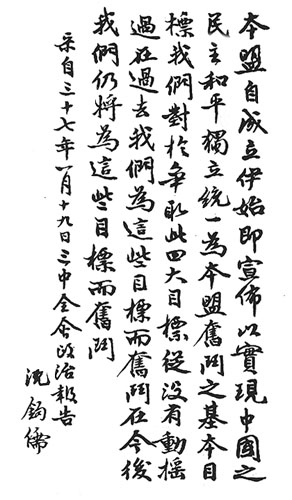 本盟自成立伊始即宣佈以實現中國之
民主和平獨立統一為本盟奮鬥之基本目
標我們對於爭取此四大目標從没有動搖
過在過去我們為這些目標而奮鬥在今後
我們仍將為這些目標而奮鬥
采自三十七年一月十九日三中全会政治報告
沈鈞儒